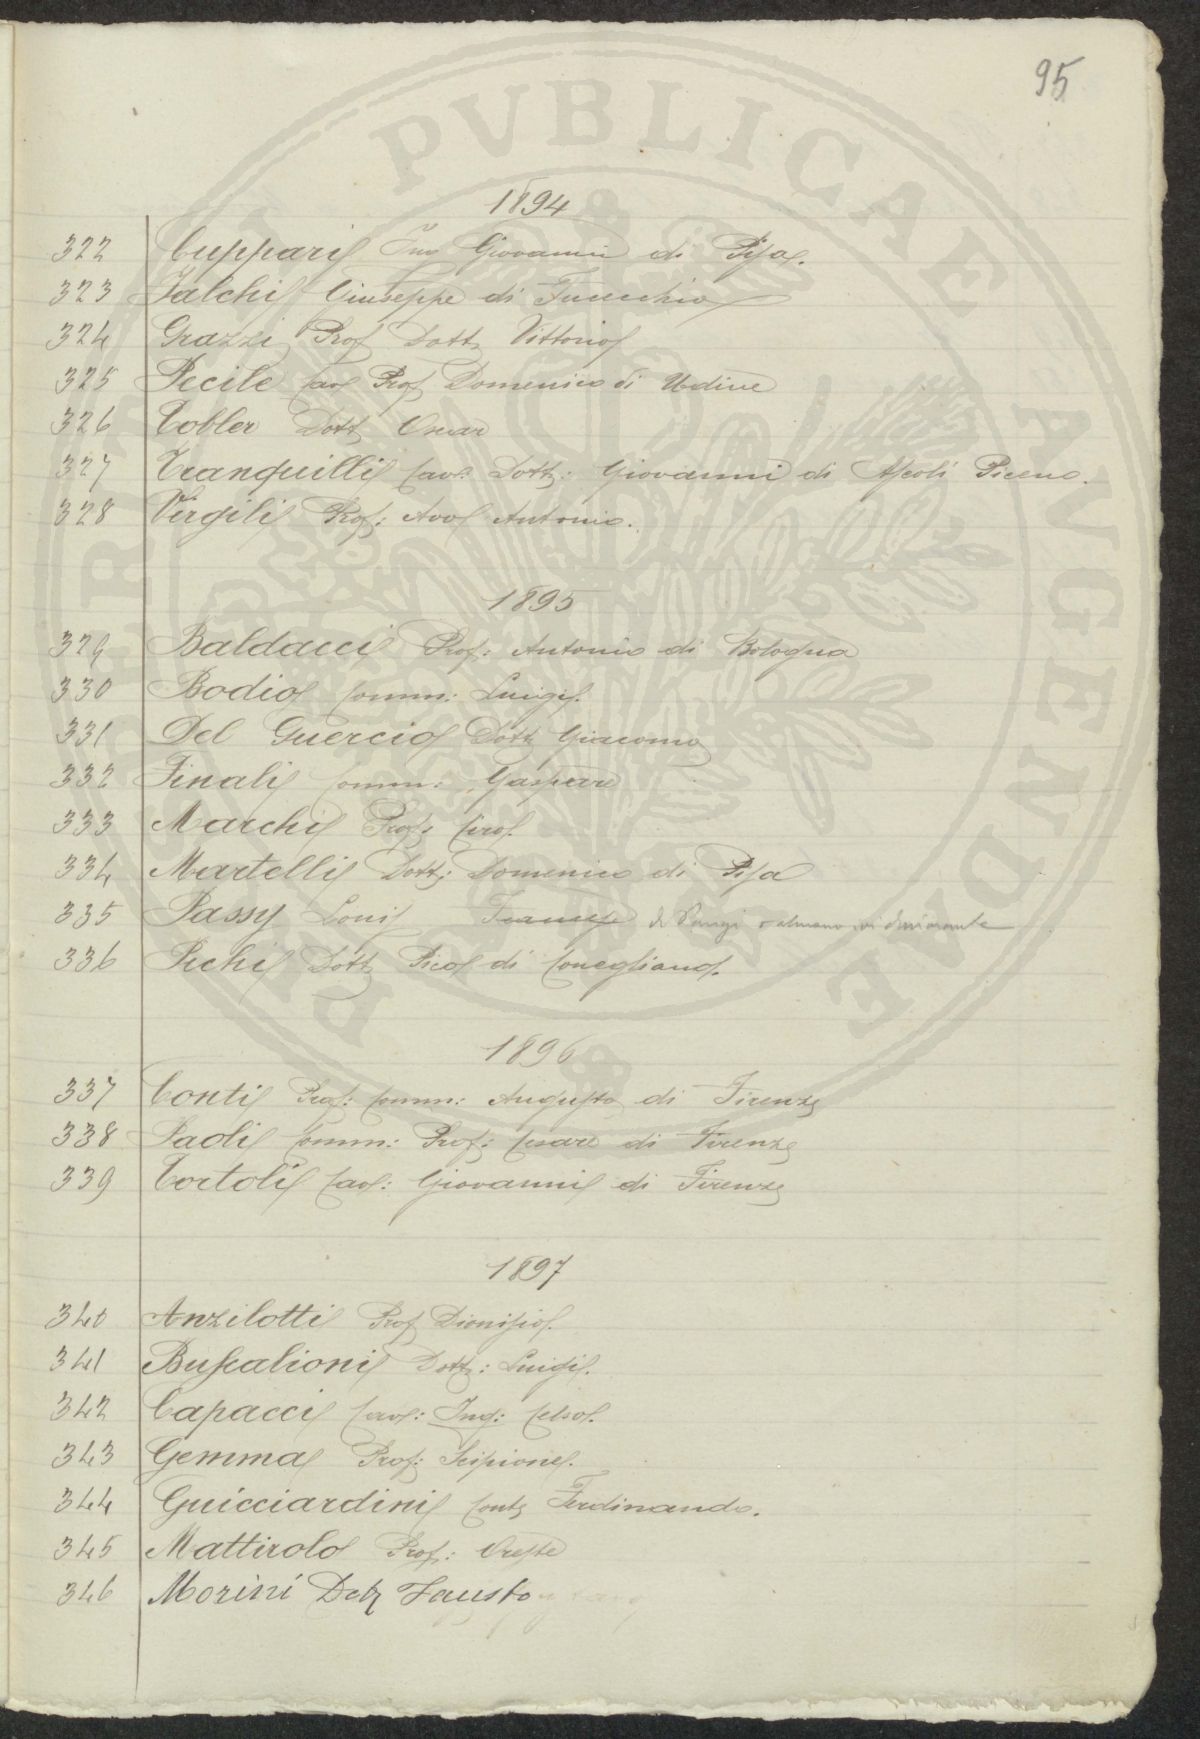 95
1894
322 Cuppari Ing Giovanni di Pisa.
323 Falchi Giuseppe di Fucecchio
324 Grazzi Prof Dott Vittorio
325 Pecile Cav Prof Domenico di Udine
326 Tobler Dott Oscar
327 Tranquilli Cav: Dott: Giovanni di Ascoli Piceno.
328 Virgili Prof: Avv Antonio.
1895
329 Baldacci Prof: Antonio di Bologna
330 Bodio Comm: Luigi.
331 Del Guercio Dott Giacomo
332 Finali Comm: Gaspare
333 Marchi Prof:
334 Martelli Dott: Domenico di Pisa
335 Passy Louis Francese di Parigi o almeno ivi dimorante
336 Pichi Dott Pico di Conegliano.
1896
337 Conti Prof: Comm: Augusto di Firenze
338 Paoli Comm: Prof: Cesare di Firenze
339 Tortoli Cav: Giovanni di Firenze
1897
340 Anzilotti Prof Dionisio.
341 Buscalioni Dott: Luigi.
342 Capacci Cav: Ing: Celso.
343 Gemma Prof: Scipione.
344 Guicciardini Conte Ferdinando.
345 Mattirolo Prof: Oreste
346 Morini Dott Fausto
PVBLICAE